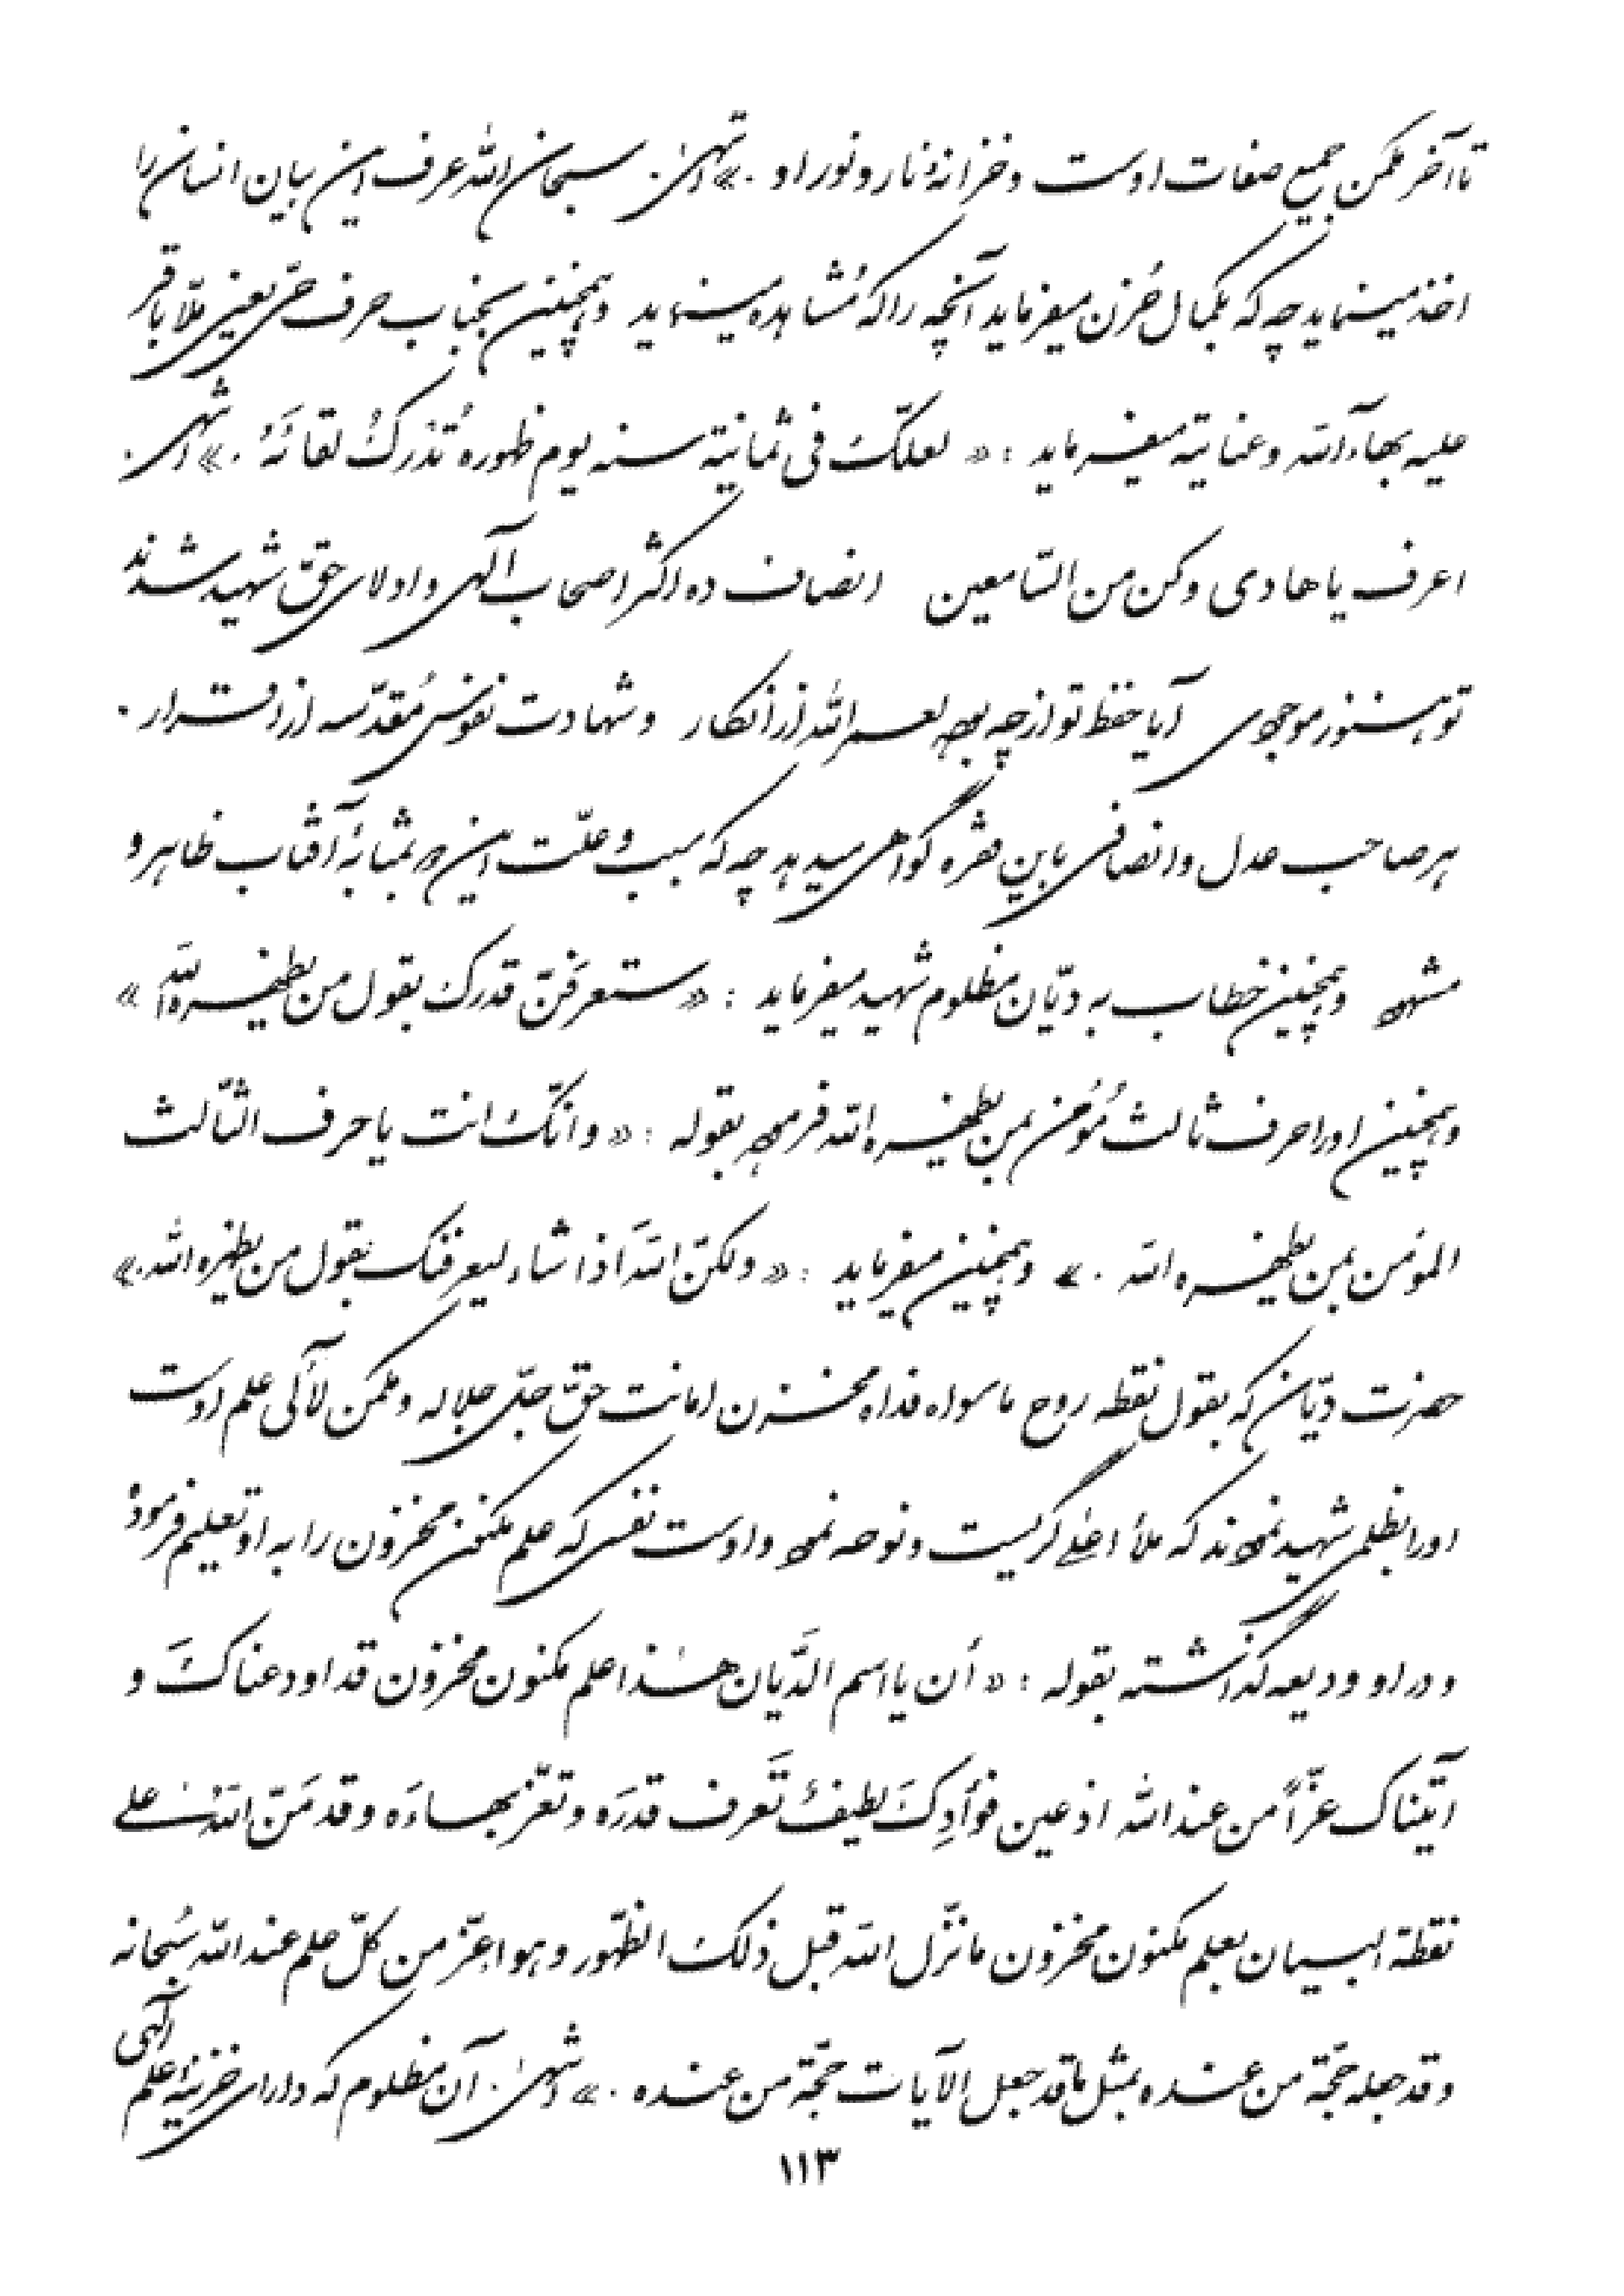 تا آخر مکمن جمیع صفات اوست و خزانهٔ نار و نور او .» انتهیٰ . سبحان الله عرف این بیان انسان را
اخذ مینماید چه که بکمال حُزن میفرماید آنچه را که مُشاهده مینماید و همچنین بجناب حرف حیّ یعنی ملّا باقر
علیه بهآء الله و عنایته میفرماید : « لعلّک فی ثمانیة سنه یوم ظهوره تُدرکُ لقائَهُ .» انتهی .
اعرف یا هادی و کن من السّامعین انصاف ده اکثر اصحاب الٓهی و ادلای حقّ شهید شدند
تو هنوز موجودی آیا حفظ تو از چه بوده لعمرالله از انکار و شهادت نفوس مُقدّسه از اقرار .
هر صاحب عدل و انصافی باین فقره گواهی میدهد چه که سبب و علّت این هر بمثابهٔ آفتاب ظاهر و
مشهود و همچنین خطاب به دیّان مظلوم شهید میفرماید : « ستعرفَنّ قدرک بقول من یظهره الله »
و همچنین او را حرف ثالث مُؤمن بمن یظهره الله فرموده بقوله : « و انّک انت یا حرف الثّالث
المؤمن بمن یظهره الله .» و همچنین میفرماید : « ولکنّ اللهَ اذا شاء لیعرفنک بقول من یظهره الله .»
حضرت دیّان که بقول نقطه روح ما سواه فداه مخزن امانت حقّ جلّ جلاله و مکمن لآلی علم اوست
او را بظلمی شهید نمودند که ملأ اعلی گریست و نوحه نمود و اوست نفسی که علم مکنون مخزون را به او تعلیم فرموده
و در او ودیعه گذاشته بقوله : « أن یا اسم الدَّیان هٰذا علم مکنون مخزون قد اودعناکَ و
آتیناک عزّاً من عند الله اذ عین فؤادِکَ لطیفٌ تَعرف قدرَه و تعزّ بهاءَه و قد مَنّ اللهُ علی
نقطة البیان بعلم مکنون مخزون ما نزّل الله قبل ذلک الظّهور و هو اعزّ من کلّ علم عند الله سُبحانه
و قد جعله حجّة من عنده بمثل ما قد جعل الآیات حجّة من عنده .» انتهیٰ . آن مظلوم که دارای خزینهٔ علم الٓهی
١١٣